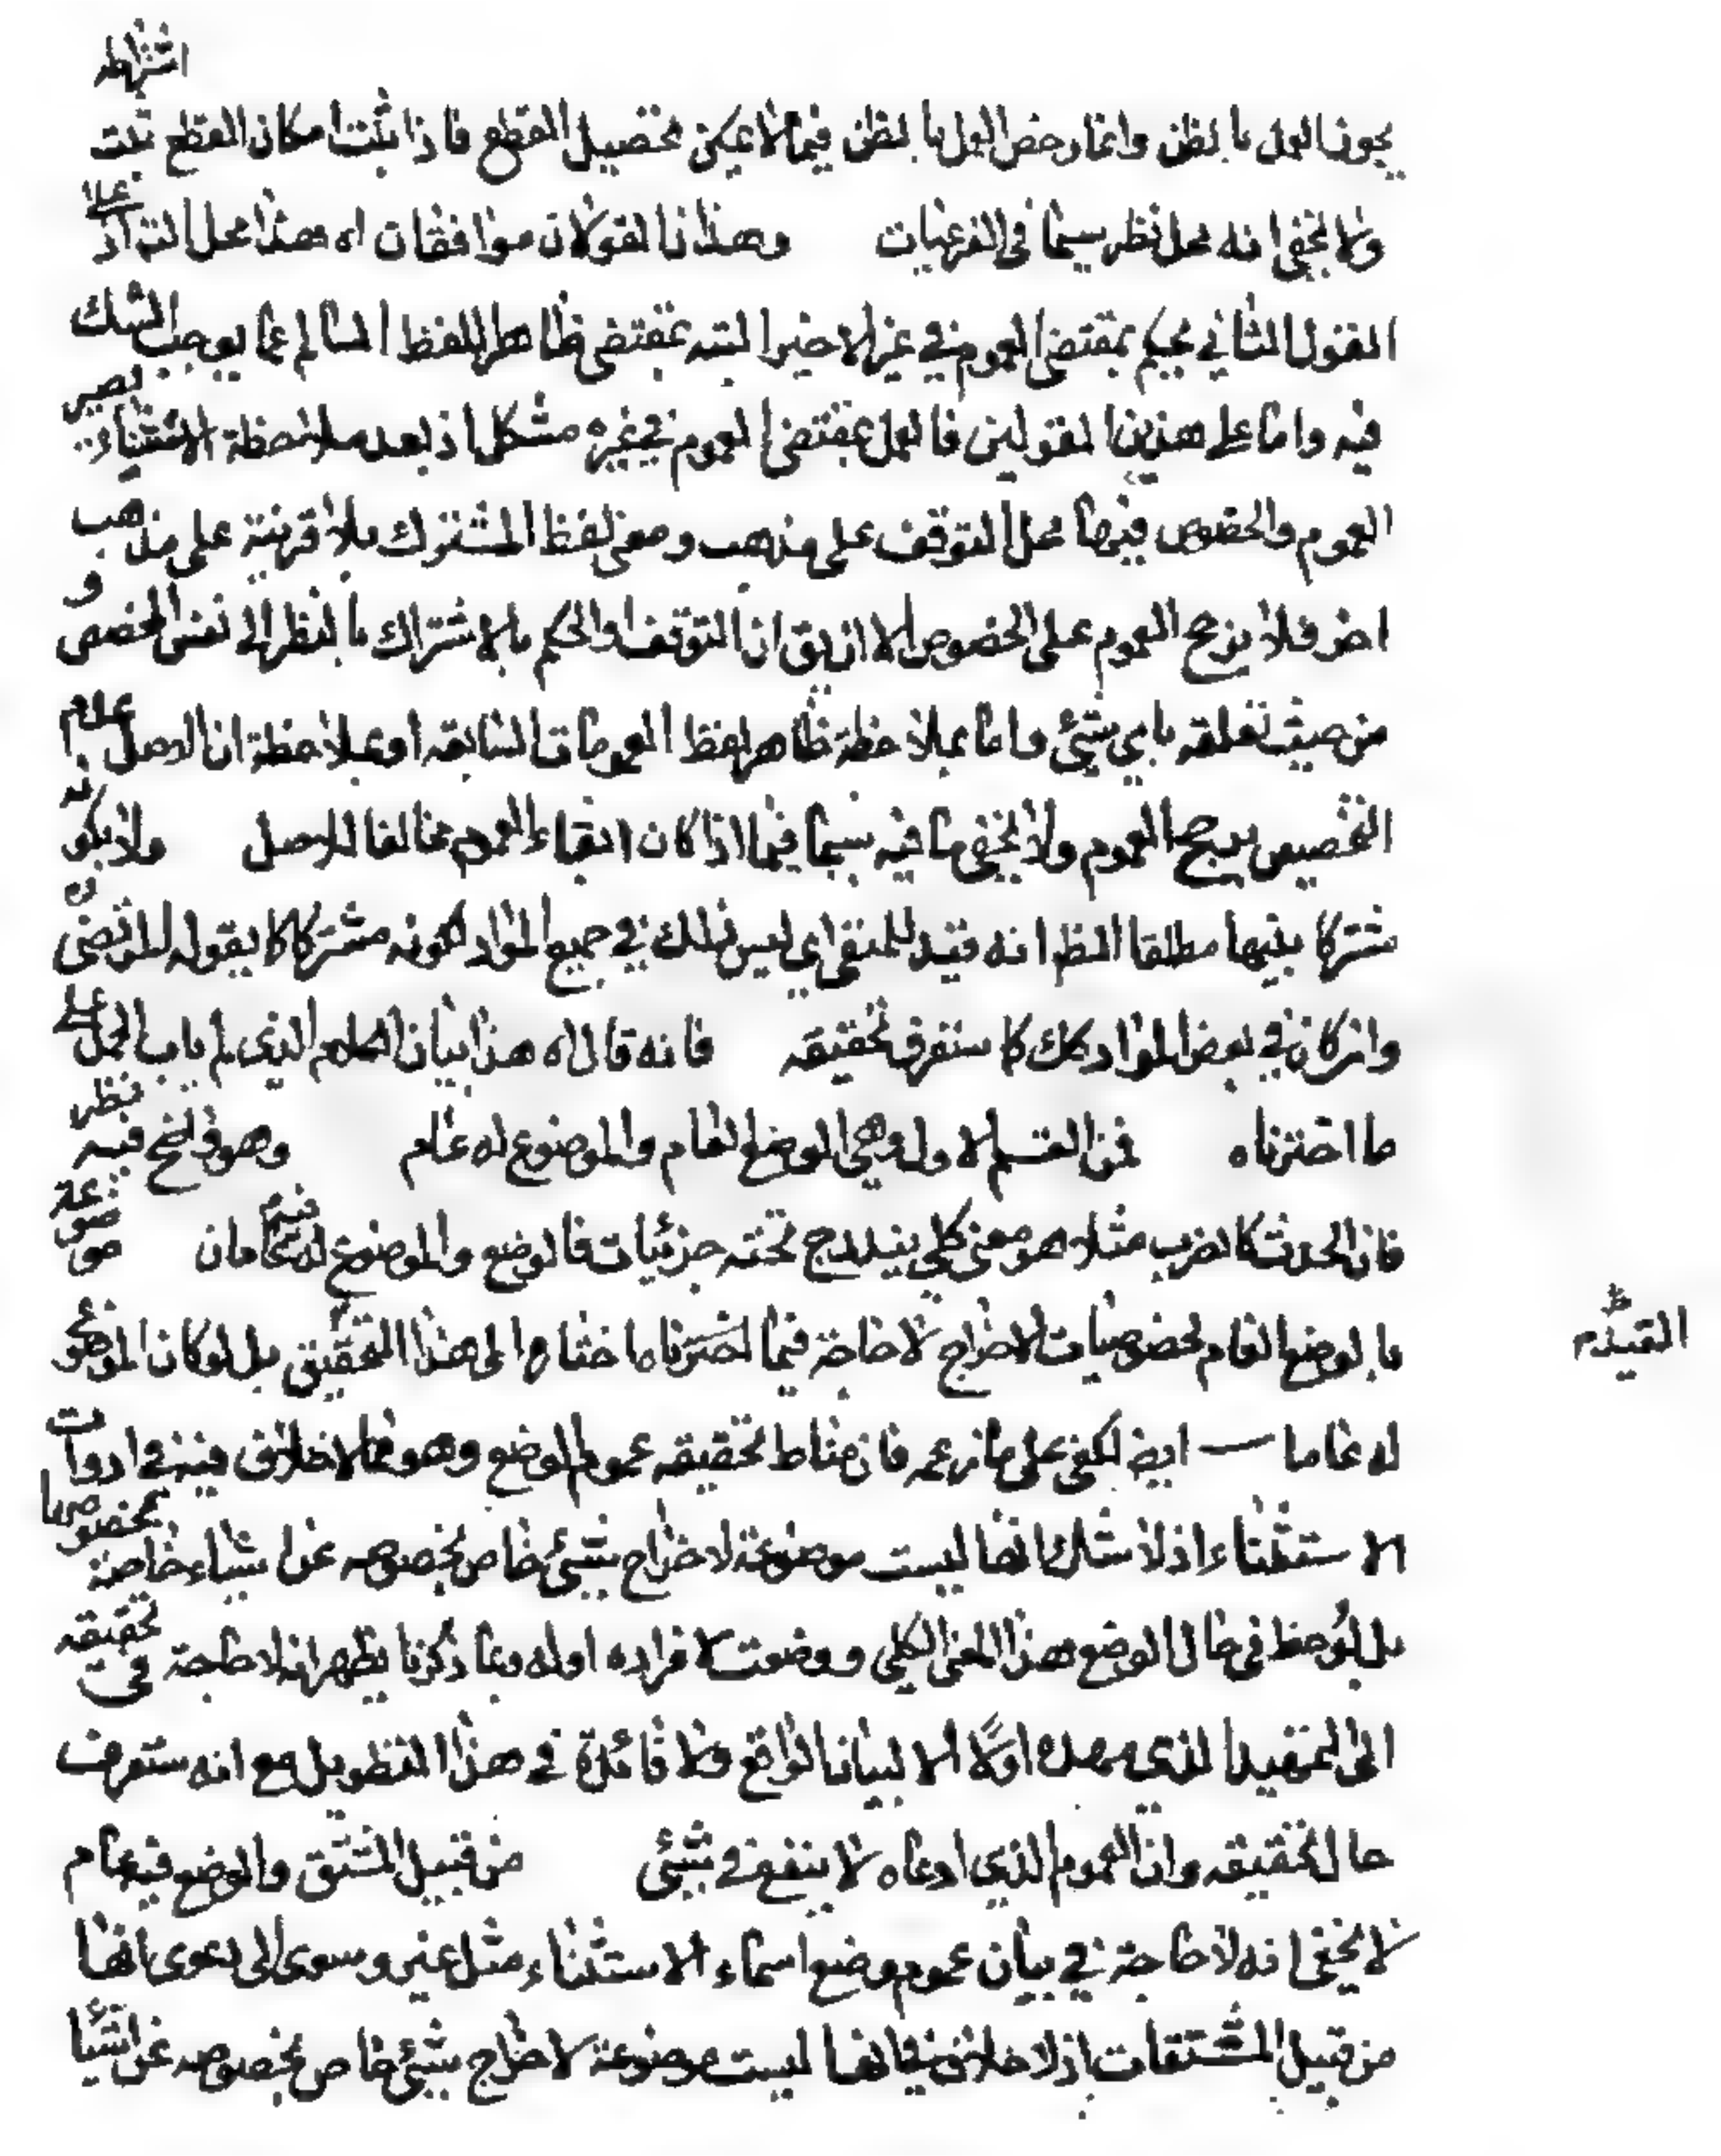 يجوز العمل بالظن وانما رخص العمل بالظن فيما لا يمكن تحصيل القطع فاذا ثبت امكان القطع ثبت اشتراطه
ولا يخفى انه محل نظر سيما في الفرعيات وهذان القولان موافقان اه هذا محل اذ على
القول الثاني يحكم بمقتضى العموم في غير الاخير البته بمقتضى ظاهر اللفظ السالم عما يوجب الشك
فيه واما على هذين القولين فالعمل بمقتضى العموم في غيره مشكل اذ بعد ملاحظة الاستثناء يصير
العموم والخصوص فيها محل التوقف على مذهب ومعنى لفظ المشترك بلا قرينة على مذهب
اخر فلا يرجح العموم على الخصوص الا ان يق ان التوقف او الحكم بالاشتراك بالنظر الى نفس المخصص و
من حيث تعلقه باي شيئ واما بملاحظة ظاهر لفظ العمومات السابقه او بملاحظة ان الاصل عدم
التخصيص يرجح العموم ولا يخفى ما فيه سيما فيما اذا كان ابقاء العموم مخالفا للاصل ولا يكون
مشتركا بينها مطلقا الظ انه قيد للمنفي اي ليس ذلك في جميع المواد لكونه مشتركا كما يقوله المرتضى
وان كان في بعض المواد كك كما ستعرف تحقيقه فانه قال اه هذا بيان الكلام الذي لم ياب الحمل على
ما اخترناه فمن القسم الاول وهي الموضع العام والموضوع له عام وهو واضح فيه نظر
فان الحدث كالضرب مثلا هو معنى كلي يندرج تحته جزئيات فالوضع والموضوع له فيه عامان موضوعة
بالوضع العام لخصوصيات الاخراج لا حاجة فيما اخترنا ما ختارها الى هذا التحقيق بل لو كان الموضوع
له عاما ايض لكفى على ما زعمه فان مناط تحقيقه عموم الوضع وهو مما لا خلاف فيه في ادوات
الاستثناء اذ لا شك انها ليست موضوعة لاخراج شيئ خاص بخصوصه عن اشياء خاصة بخصوصها
بل لوحظ في حال الوضع هذا المعنى الكلي ووضعت لافراده او له وبما ذكرنا يظهر انه لا حاجة في تحقيقه
الى التمهيد الذي مهده اولا الا لبيان الواقع ولا فائدة في هذا التطويل مع انه ستعرف
حال تحقيقه وان العموم الذي ادعاه لا ينفع في شيئ من قبيل المشتق والوضع فيه عام
لا يخفى انه لا حاجة في بيان عموم وضع اسماء الاستثناء مثل غير وسوى الى دعوى انها
من قبيل المشتقات اذ لا خلاف في انها ليست موضوعة لاخراج شيئ خاص بخصوصه عن اشيا